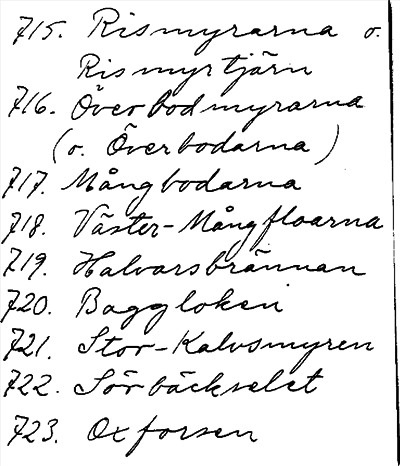 715. Rismyrarna o.
Rismyrtjärn
716. Överbodmyrarna
(o. Överbodarna)
717. Mångbodarna
718. Väster-Mångfloarna
719. Halvarsbrännan
720. Baggloken
721. Stor-Kalvsmyren
722. Sörbäckselet
723. Oxforsen